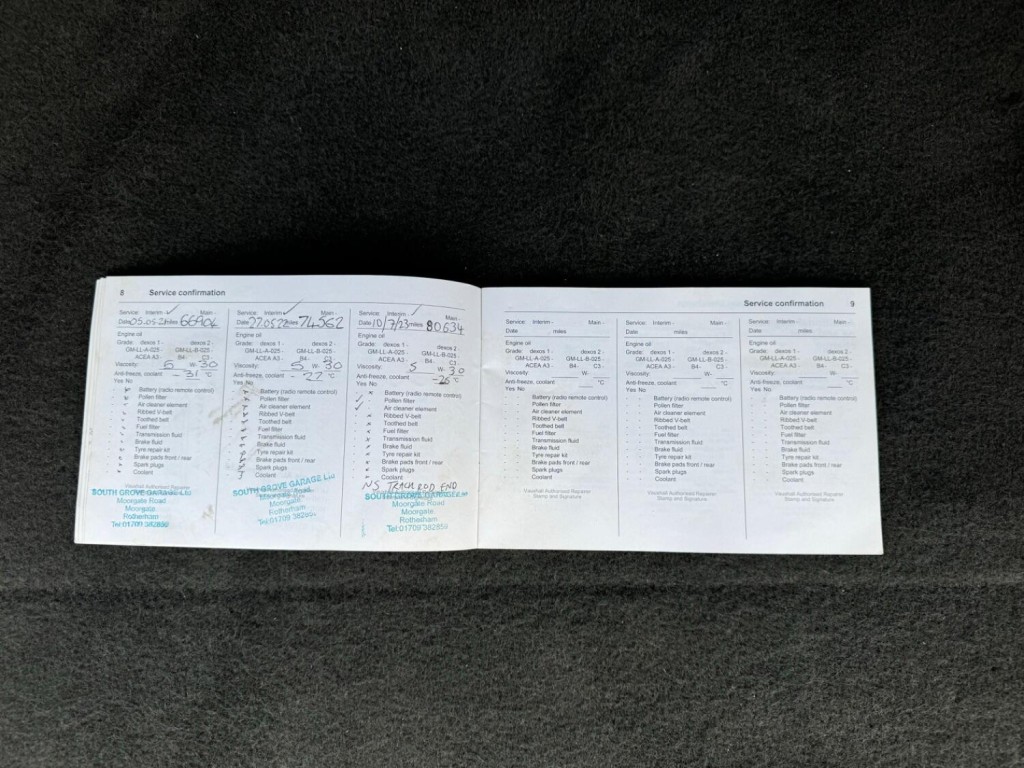 8 Service confirmation
Service: Interim - ✓ Main -
Date 05.05.21 miles 66904
Engine oil
Grade: dexos 1 - dexos 2 -
GM-LL-A-025 - GM-LL-B-025 -
ACEA A3 - B4- C3 -
Viscosity: 5 W- 30
Anti-freeze, coolant °C
Yes No
Battery (radio remote control)
Pollen filter
Air cleaner element
Ribbed V-belt
Toothed belt
Fuel filter
Transmission fluid
Brake fluid
Tyre repair kit
Brake pads front / rear
Spark plugs
Coolant
SOUTH GROVE GARAGE Ltd
Moorgate Road
Moorgate
Rotherham
Tel:01709 382859
Service: Interim - ✓ Main -
Date 27.05.22 miles 74562
Engine oil
Grade: dexos 1 - dexos 2 -
GM-LL-A-025 - GM-LL-B-025 -
ACEA A3 - B4- C3 -
Viscosity: 5 W- 30
Anti-freeze, coolant - 27 °C
Yes No
Battery (radio remote control)
Pollen filter
Air cleaner element
Ribbed V-belt
Toothed belt
Fuel filter
Transmission fluid
Brake fluid
Tyre repair kit
Brake pads front / rear
Spark plugs
Coolant
SOUTH GROVE GARAGE Ltd
Moorgate Road
Moorgate
Rotherham
Tel:01709 382859
Service: Interim - ✓ Main -
Date 10/7/23 miles 80634
Engine oil
Grade: dexos 1 - dexos 2 -
GM-LL-A-025 - GM-LL-B-025 -
ACEA A3 - B4- C3 -
Viscosity: 5 W- 30
Anti-freeze, coolant -26 °C
Yes No
Battery (radio remote control)
Pollen filter
Air cleaner element
Ribbed V-belt
Toothed belt
Fuel filter
Transmission fluid
Brake fluid
Tyre repair kit
Brake pads front / rear
Spark plugs
Coolant
NS TRACK ROD END
SOUTH GROVE GARAGE Ltd
Moorgate Road
Moorgate
Rotherham
Tel:01709 382859
Service confirmation 9
Service: Interim - Main -
Date miles
Engine oil
Grade: dexos 1 - dexos 2 -
GM-LL-A-025 - GM-LL-B-025 -
ACEA A3 - B4- C3 -
Viscosity: W-
Anti-freeze, coolant °C
Yes No
Battery (radio remote control)
Pollen filter
Air cleaner element
Ribbed V-belt
Toothed belt
Fuel filter
Transmission fluid
Brake fluid
Tyre repair kit
Brake pads front / rear
Spark plugs
Coolant
Vauxhall Authorised Repairer
Stamp and Signature
Service: Interim - Main -
Date miles
Engine oil
Grade: dexos 1 - dexos 2 -
GM-LL-A-025 - GM-LL-B-025 -
ACEA A3 - B4- C3 -
Viscosity: W-
Anti-freeze, coolant °C
Yes No
Battery (radio remote control)
Pollen filter
Air cleaner element
Ribbed V-belt
Toothed belt
Fuel filter
Transmission fluid
Brake fluid
Tyre repair kit
Brake pads front / rear
Spark plugs
Coolant
Vauxhall Authorised Repairer
Stamp and Signature
Service: Interim - Main -
Date miles
Engine oil
Grade: dexos 1 - dexos 2 -
GM-LL-A-025 - GM-LL-B-025 -
ACEA A3 - B4- C3 -
Viscosity: W-
Anti-freeze, coolant °C
Yes No
Battery (radio remote control)
Pollen filter
Air cleaner element
Ribbed V-belt
Toothed belt
Fuel filter
Transmission fluid
Brake fluid
Tyre repair kit
Brake pads front / rear
Spark plugs
Coolant
Vauxhall Authorised Repairer
Stamp and Signature